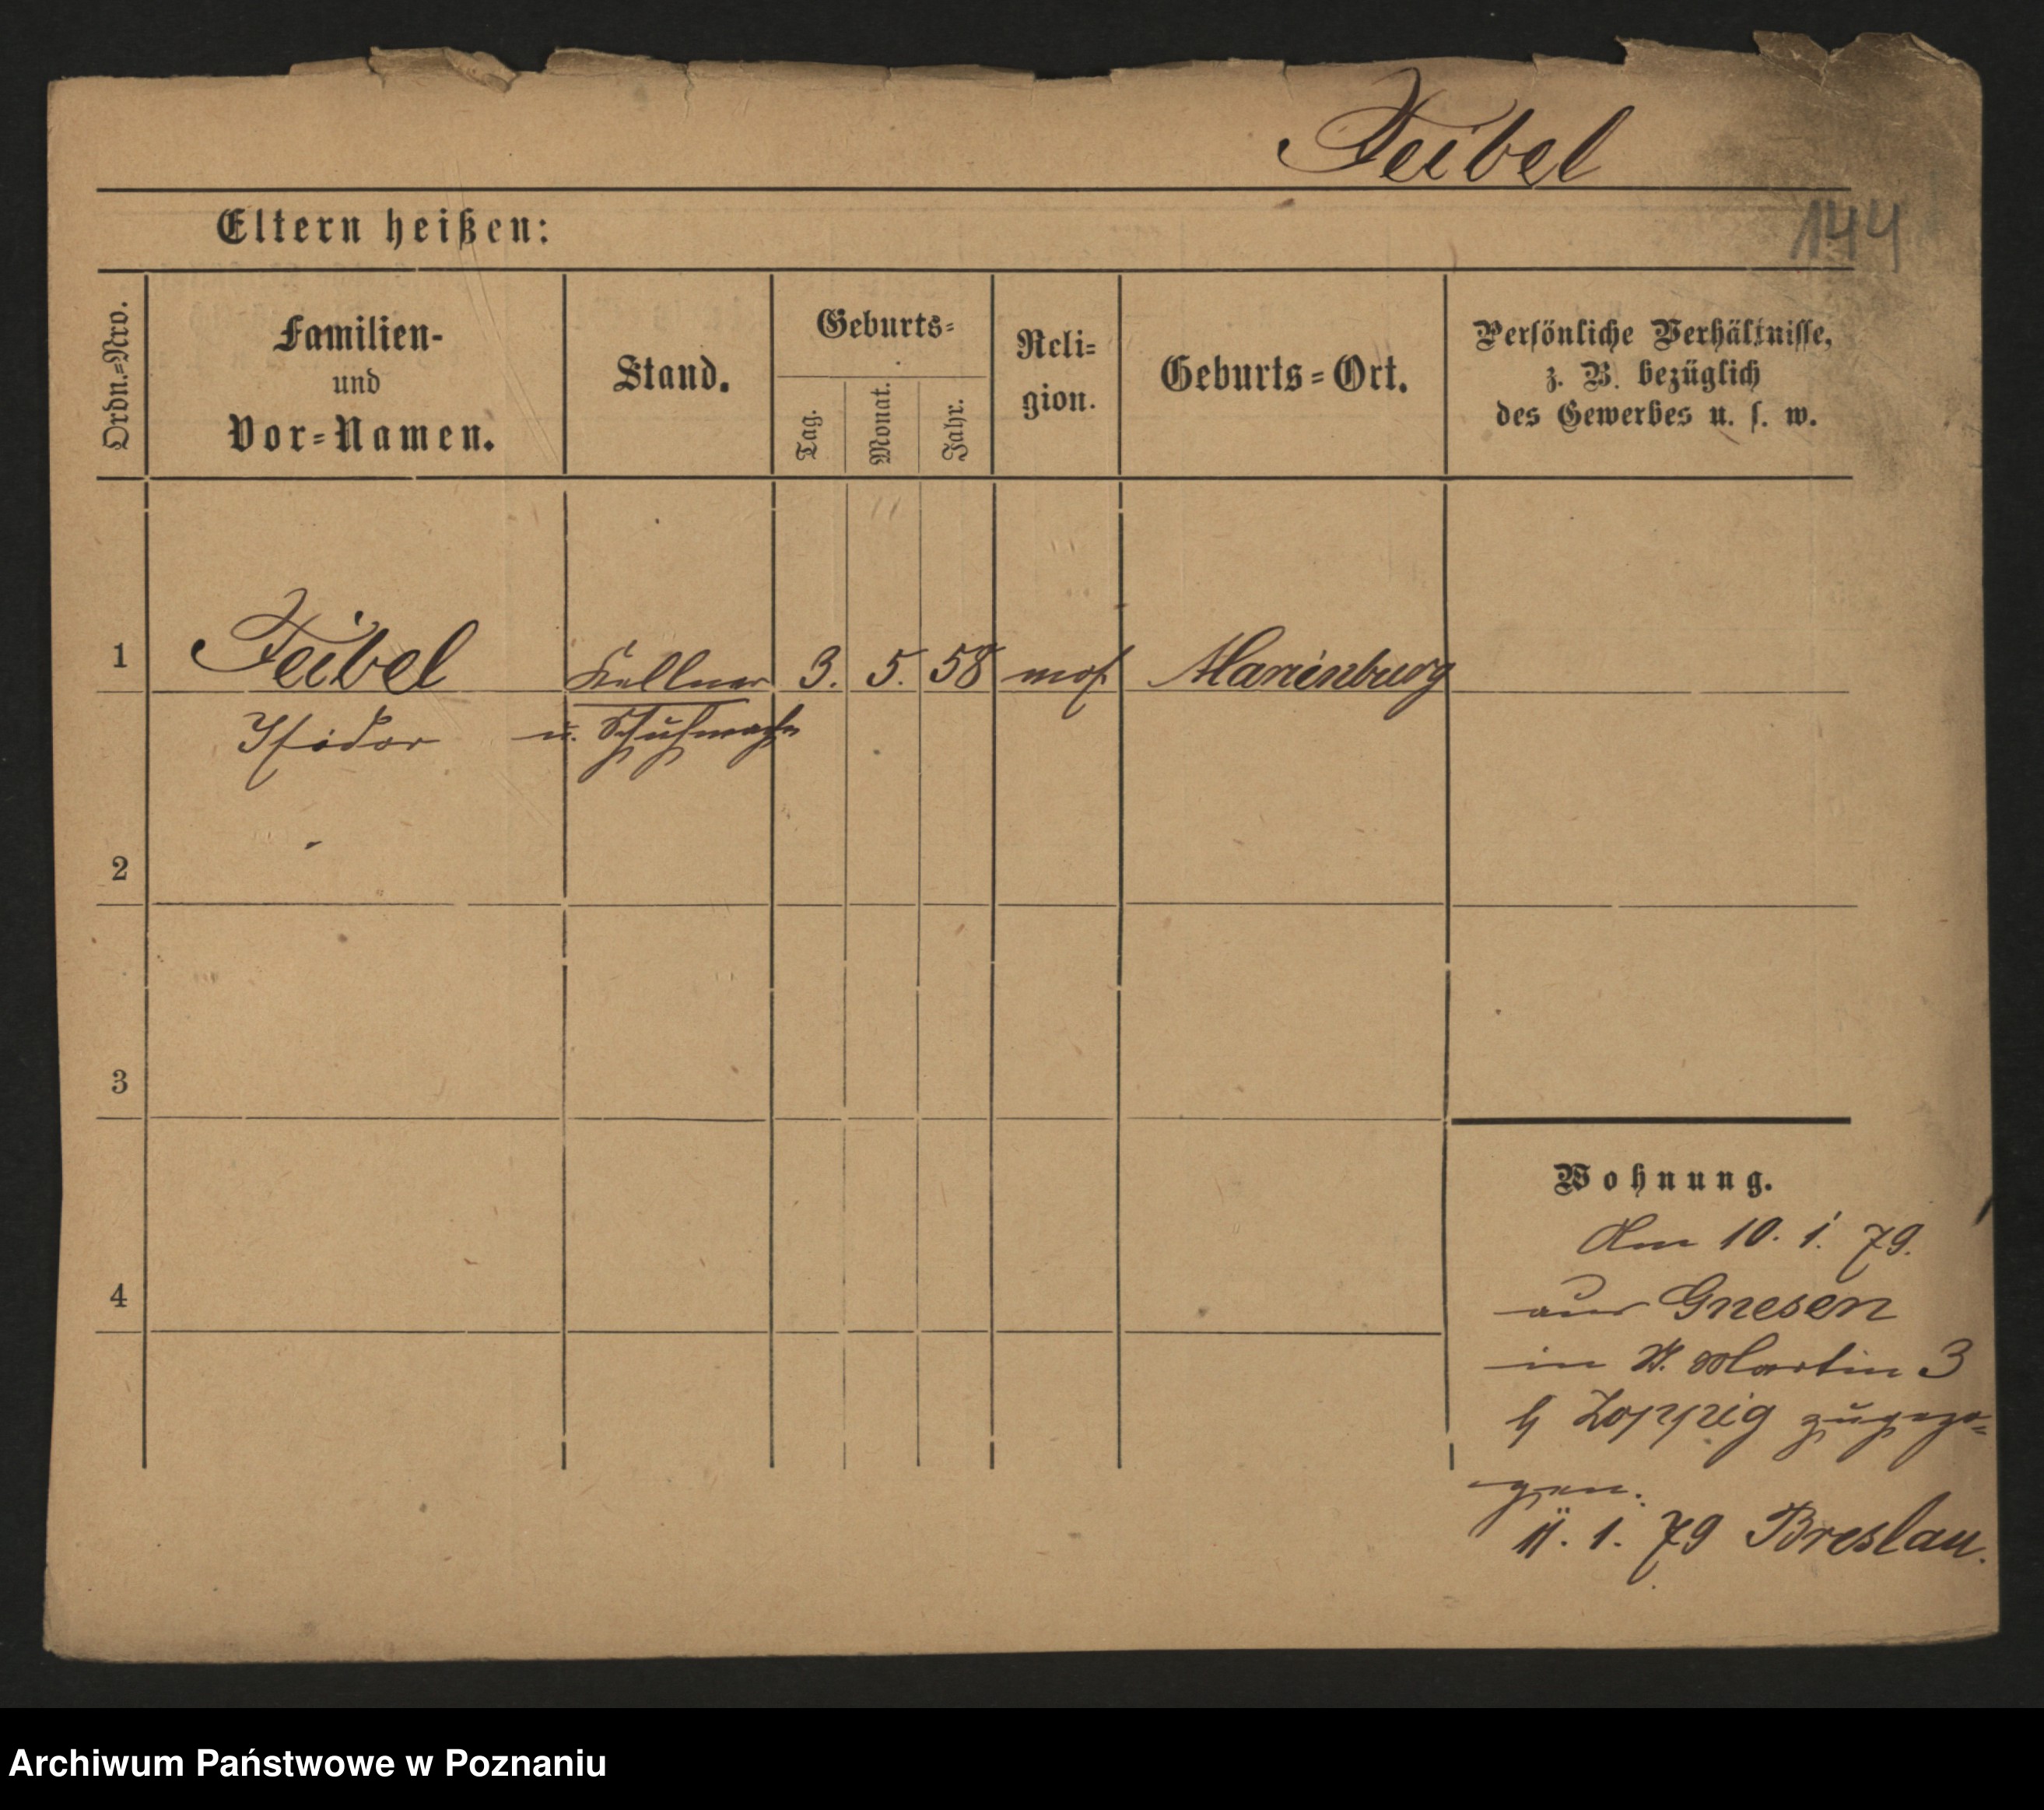 Feibel
Eltern heißen:
144
Ordn.=Nro.
Familien-
und
Vor=Namen.
Stand.
Geburts=
Tag.
Monat.
Jahr.
Reli=
gion.
Geburts=Ort.
Persönliche Verhältnisse,
z. B. bezüglich
des Gewerbes u. s. w.
1 Feibel Kellner 3. 5. 58 mos. Marienburg
Isidor u. Schuhmach
2
3
4
Wohnung.
Am 10. 1. 79.
aus Gnesen
in St. Martin 3
b Zoppig zugezo=
gen.
11. 1. 79 Breslau.
Archiwum Państwowe w Poznaniu